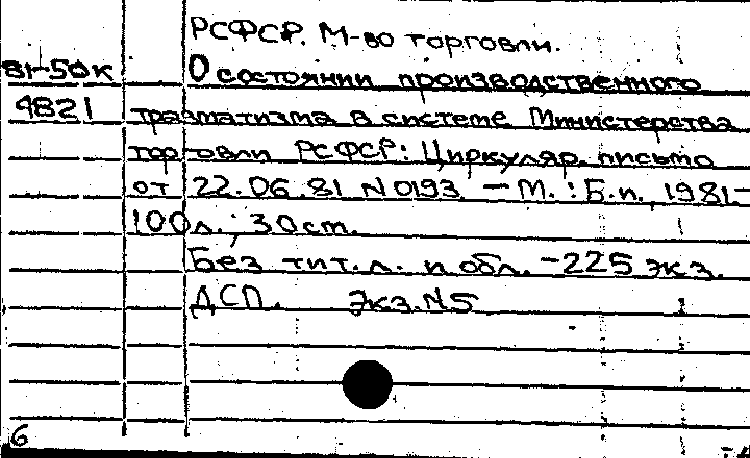 РСФСР. М-во торговли.
81-50к О состоянии производственного
4821 травматизма в системе Министерства
торговли РСФСР: Циркуляр. письмо
от 22.06.81 N 0193. — М.: Б.и., 1981—
100л.; 30см.
Без тит.л. и обл. —225 экз.
ДСП. Экз.N5
6